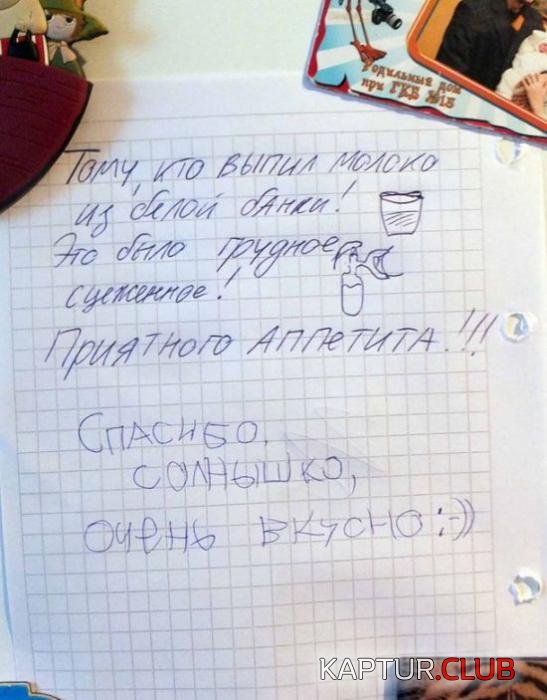 Родильный дом
при ГКБ №15
Тому, кто выпил молоко
из белой банки!
Это было грудное
сцеженное!
Приятного Аппетита!!!
Спасибо,
солнышко,
очень вкусно :-))
KAPTUR.CLUB